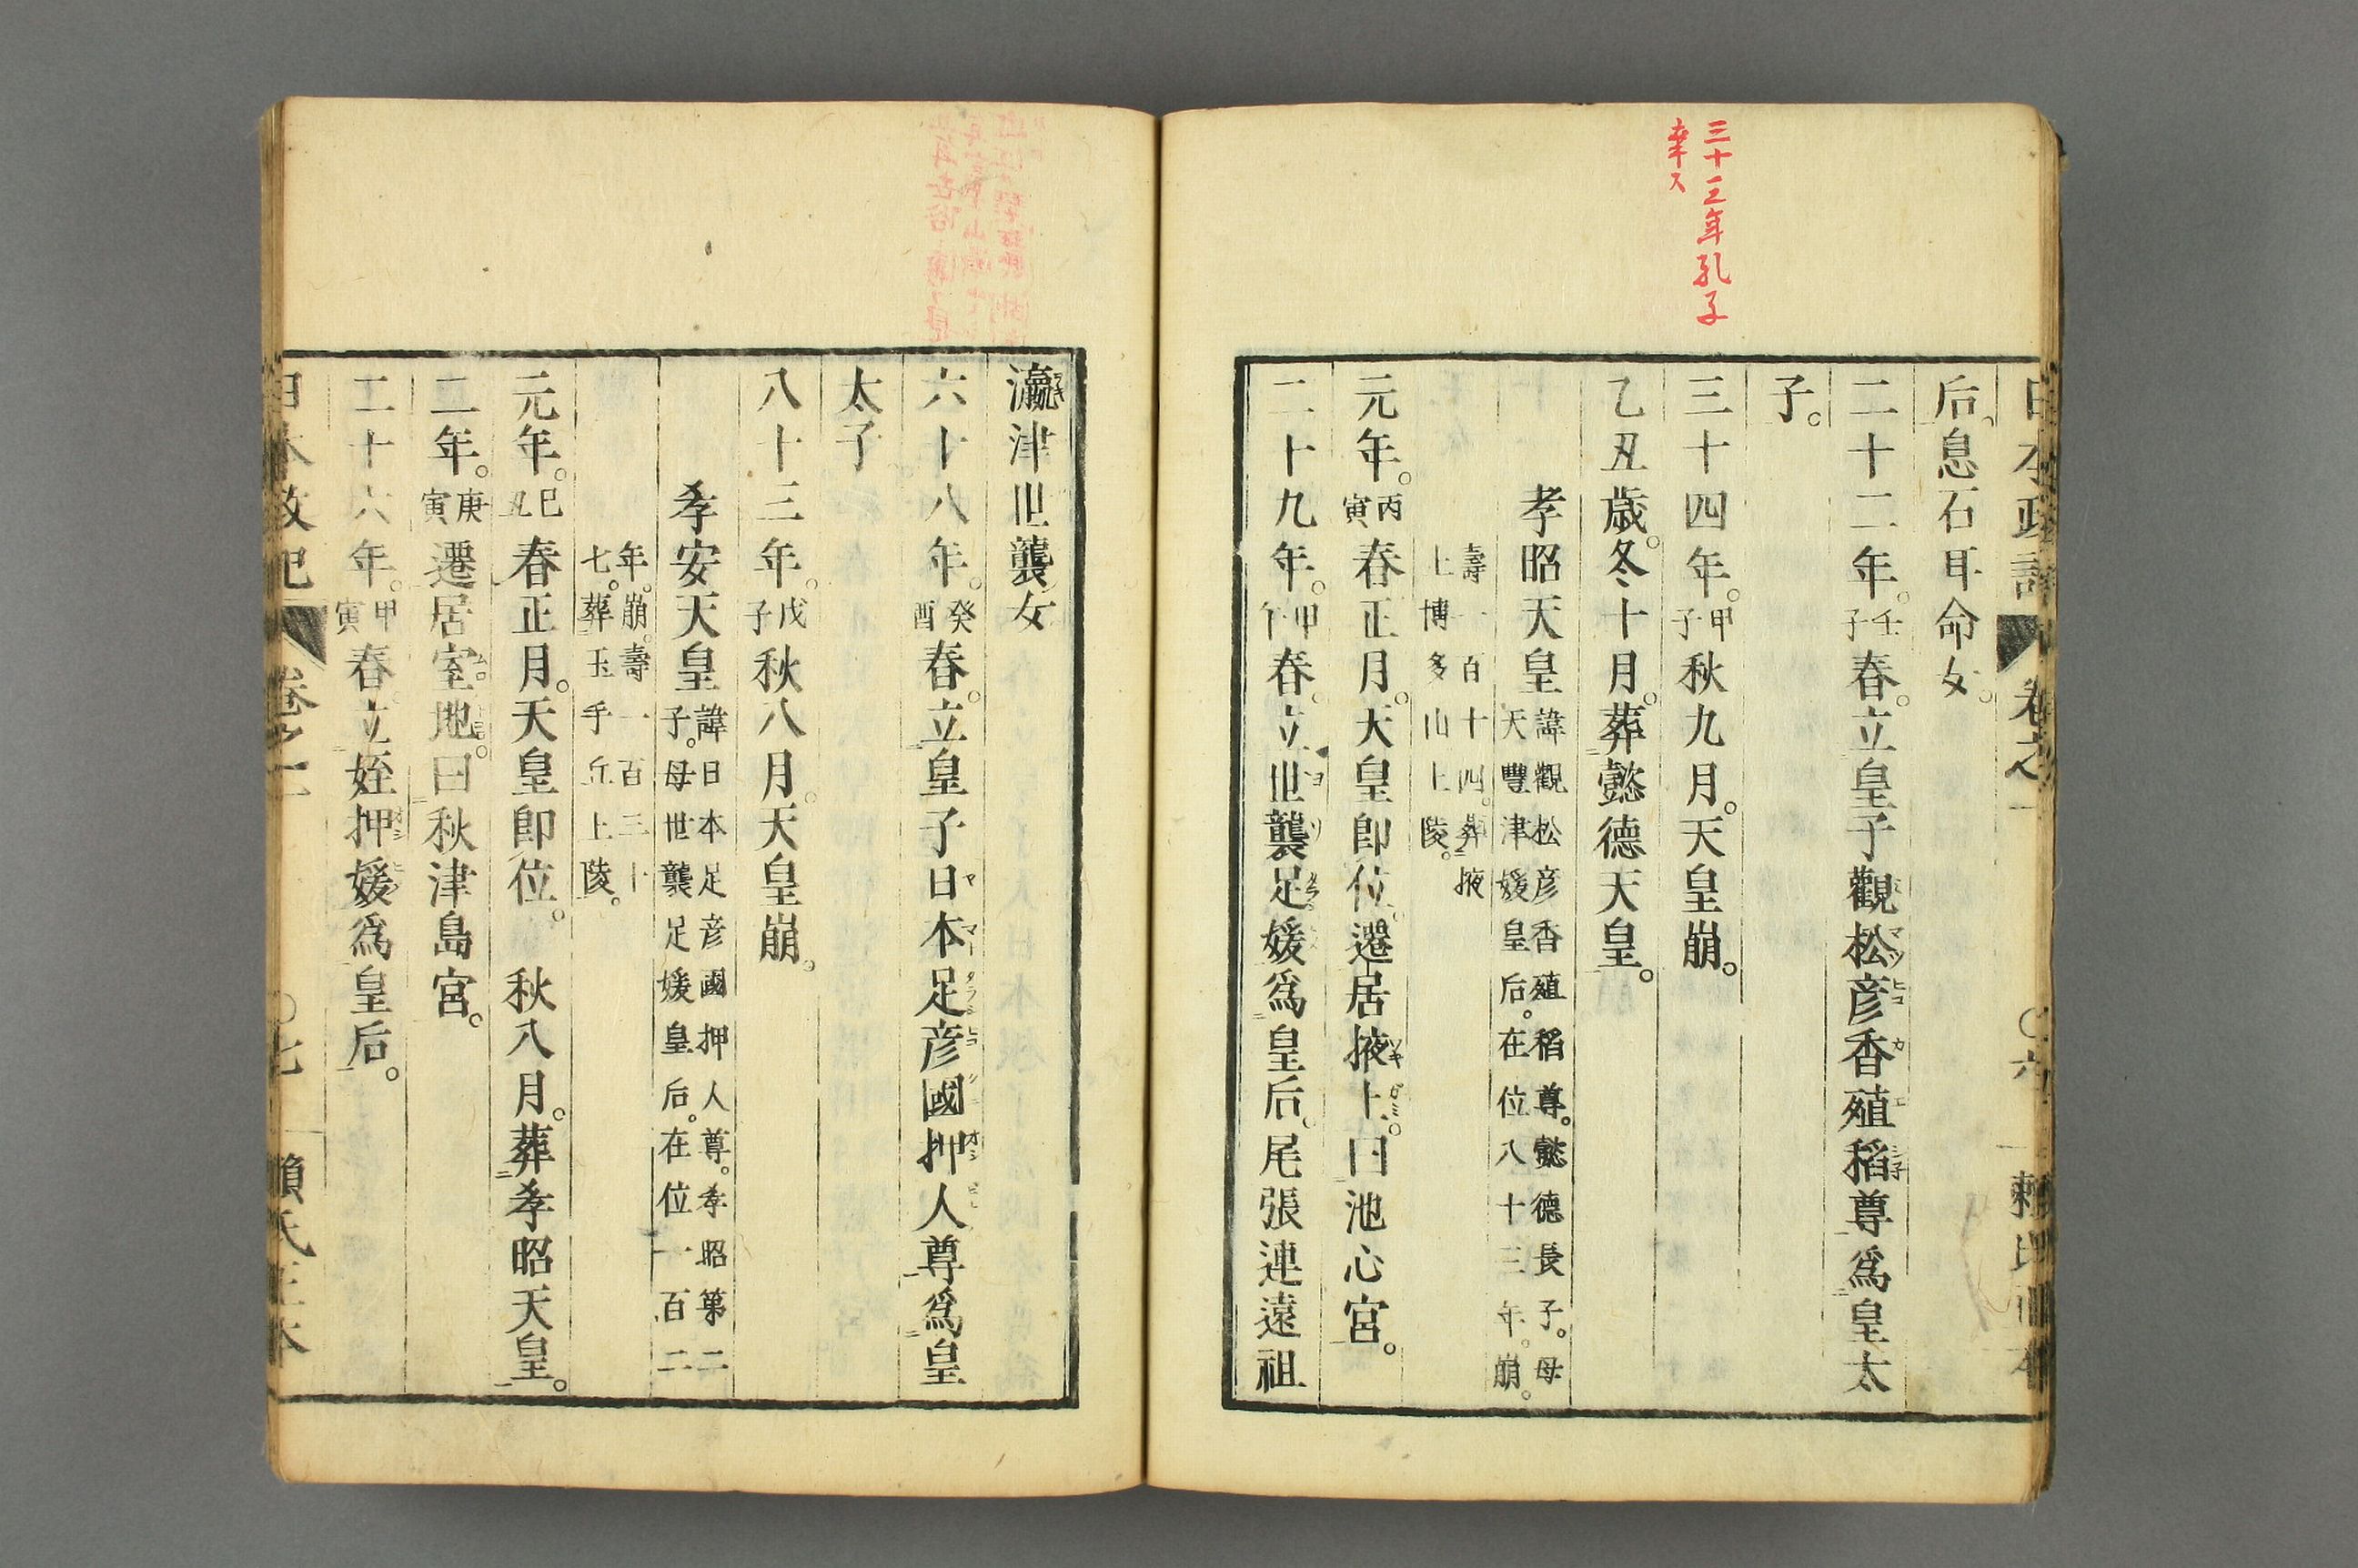 三十三年孔子
卒ス
日本政記 卷之一 〇六 賴氏正本
后息石耳命女。
二十二年。壬子春。立皇子觀松彦香殖稻尊爲皇太
子。
三十四年。甲子秋九月。天皇崩。
乙丑歳。冬十月。葬懿德天皇。
孝昭天皇諱觀松彦香殖稻尊。懿德長子。母
天豐津媛皇后。在位八十三年。崩。
壽一百十四。葬掖
上博多山上陵。
元年。丙寅春正月。天皇卽位。遷居掖上。曰池心宮。
二十九年。甲午春。立世襲足媛爲皇后。尾張連遠祖
瀛津世襲女
六十八年。癸酉春。立皇子日本足彦國押人尊爲皇
太子
八十三年。戊子秋八月。天皇崩。
孝安天皇諱日本足彦國押人尊。孝昭第二
子。母世襲足媛皇后。在位一百二
年。崩。壽一百三十
七。葬玉手丘上陵。
元年。己丑春正月。天皇卽位。秋八月。葬孝昭天皇。
二年。庚寅遷居室地。曰秋津島宮。
二十六年。甲寅春。立姪押媛爲皇后。
日本政記 卷之一 〇七 賴氏正本